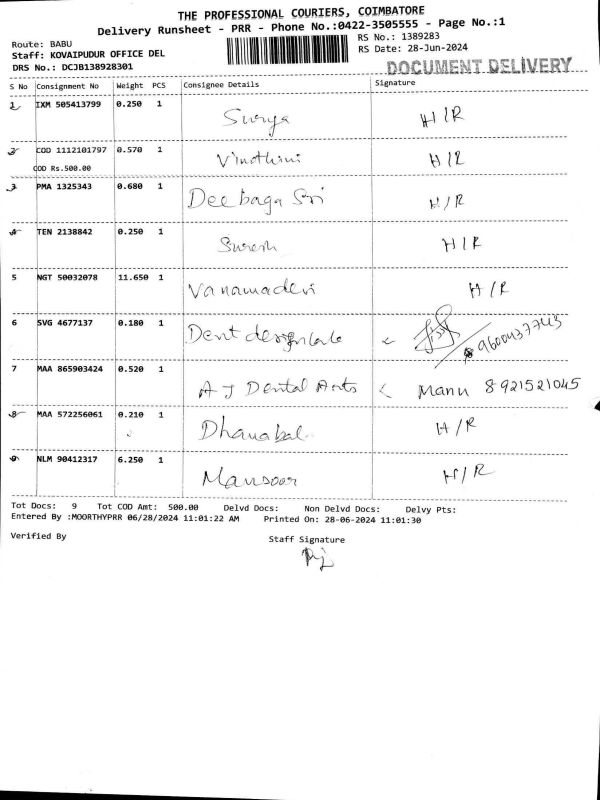 THE PROFESSIONAL COURIERS, COIMBATORE
Delivery Runsheet - PRR - Phone No.:0422-3505555 - Page No.:1
Route: BABU
RS No.: 1389283
Staff: KOVAIPUDUR OFFICE DEL
RS Date: 28-Jun-2024
DRS No.: DCJB138928301
DOCUMENT DELIVERY
S No Consignment No Weight PCS Consignee Details Signature
1 IXM 505413799 0.250 1 Surya H/R
2 COD 1112101797 0.570 1 Vinothini H/R
COD Rs.500.00
3 PMA 1325343 0.680 1 Deebaga Sri H/R
4 TEN 2138842 0.250 1 Suresh H/R
5 NGT 50032078 11.650 1 Vanamadevi H/R
6 SVG 4677137 0.180 1 9600437743
7 MAA 865903424 0.520 1 A J Dental Arts < Manu 8921521045
8 MAA 572256061 0.210 1 Dhanabal H/R
9 NLM 90412317 6.250 1 Mansoor H/R
Tot Docs: 9 Tot COD Amt: 500.00 Delvd Docs: Non Delvd Docs: Delvy Pts:
Entered By :MOORTHYPRR 06/28/2024 11:01:22 AM Printed On: 28-06-2024 11:01:30
Verified By Staff Signature